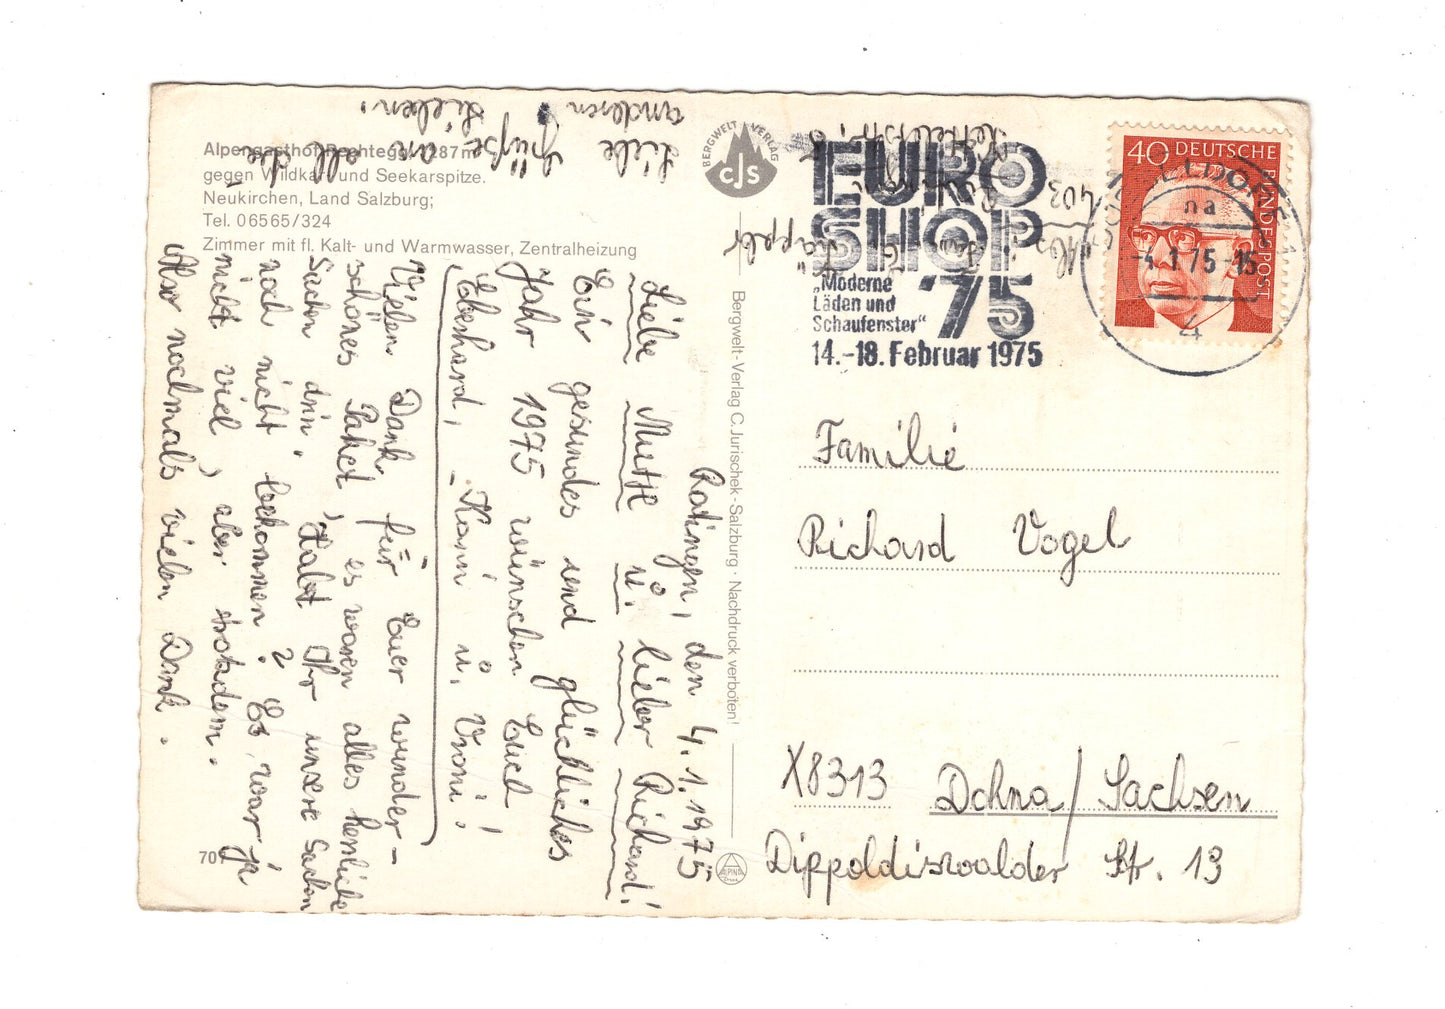 Alpengasthof Rechtegg 1287 m
gegen Wildkar und Seekarspitze.
Neukirchen, Land Salzburg;
Tel. 06565/324
Zimmer mit fl. Kalt- und Warmwasser, Zentralheizung
Ratingen, den 4.1.1975
Liebe Mutte u. lieber Richard!
Ein gesundes und glückliches
Jahr 1975 wünschen Euch
Eberhard, Karin u. Vroni!
Vielen Dank für Euer wunder-
schönes Paket, es waren alles herrliche
Sachen drin. Habt Ihr unsere Sachen
noch nicht bekommen? Es war ja
nicht viel, aber trotzdem.
Also nochmals vielen Dank.
Liebe Grüße an all die
anderen Lieben.
BERGWELT VERLAG
CJS
Bergwelt-Verlag C. Jurischek-Salzburg · Nachdruck verboten!
ALPINA
709
EURO
SHOP
'75
„Moderne
Läden und
Schaufenster"
14.-18. Februar 1975
40 DEUTSCHE
BUNDESPOST
na
-4.1.75-15
4
403
Familie
Richard Vogel
X8313 Dohna/Sachsen
Dippoldiswalder Str. 19